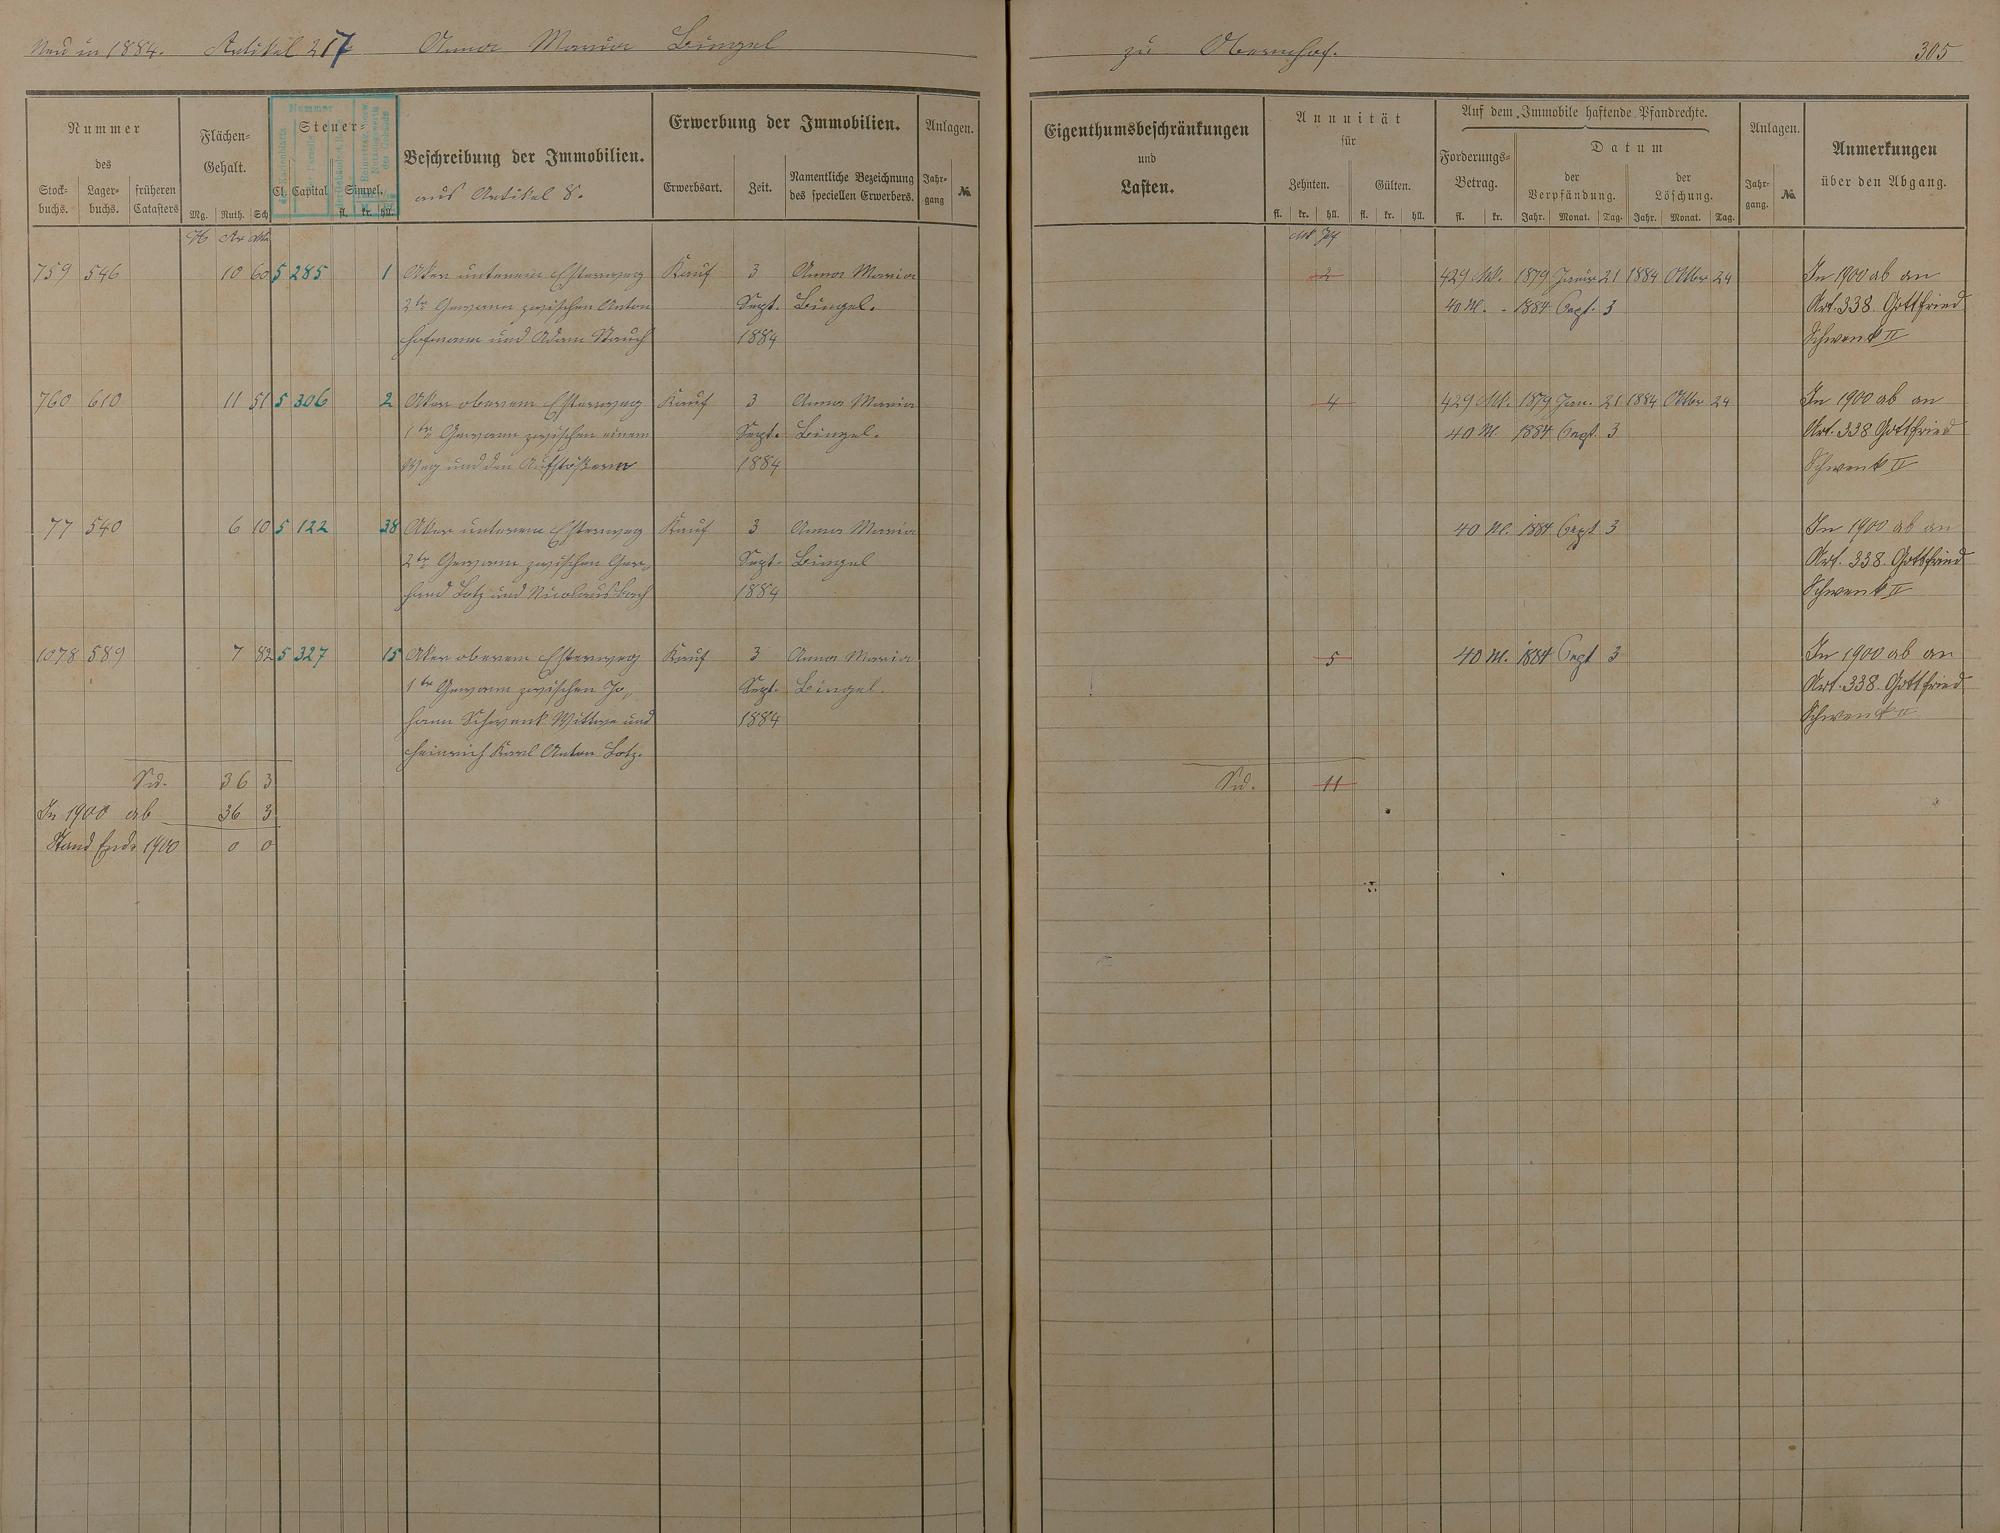 Neu in 1884. Artikel 217 Anna Maria Bingel zu Obernhof. 305
Nummer
des
Stock-
buchs.
Lager-
buchs.
früheren
Catasters
Flächen-
Gehalt.
Mg. Ruth. Sch
Steuer-
Cl. Capital Simpel.
fl. kr. hll.
Nummer
Beschreibung der Immobilien.
aus Artikel 8.
Erwerbung der Immobilien.
Erwerbsart. Zeit. Namentliche Bezeichnung
des speciellen Erwerbers.
Anlagen.
Jahr-
gang
No.
Eigenthumsbeschränkungen
und
Lasten.
Annuität
für
Zehnten. Gülten.
fl. kr. hll. fl. kr. hll.
Auf dem Immobile haftende Pfandrechte.
Forderungs-
Betrag.
fl. kr.
Datum
der
Verpfändung.
der
Löschung.
Jahr. Monat. Tag. Jahr. Monat. Tag.
Anlagen.
Jahr-
gang.
No.
Anmerkungen
über den Abgang.
H Ar Mtr Mk Pf
759 546 10 60 5 285 1 Aker unterem Esterweg Kauf 3 Anna Maria 2 429 Mk. 1879 Januar 21 1884 Oktbr 24 In 1900 ab an
2te Gewann zwischen Anton Sept. Bingel. 40 M. - 1884 Sept. 3 Art. 338 Gottfried
Hofmann und Adam Stauch 1884 Schwenk II
760 610 11 51 5 306 2 Aker oberem Esterweg Kauf 3 Anna Maria 4 429 Mk. 1879 Jan. 21 1884 Oktbr 24 In 1900 ab an
1te Gewann zwischen einem Sept. Bingel. 40 M 1884 Sept. 3 Art. 338 Gottfried
Weg und den Aufstößern 1884 Schwenk II
77 540 6 10 5 122 38 Aker unterem Esterweg Kauf 3 Anna Maria 40 M. 1884 Sept 3 In 1900 ab an
2te Gewann zwischen Ger- Sept. Bingel Art. 338. Gottfried
hard Lotz und Nicolaus Bach 1884 Schwenk II
1078 589 7 82 5 327 15 Aker oberem Esterweg Kauf 3 Anna Maria 5 40 M. 1884 Sept 3 In 1900 ab an
1te Gewann zwischen Jo- Sept. Bingel. Art. 338. Gottfried
hann Schwenk Wittwe und 1884 Schwenk II
Heinrich Karl Anton Lotz.
Sa. 36 3 Sa. 11
In 1900 ab 36 3
Stand Ende 1900 0 0